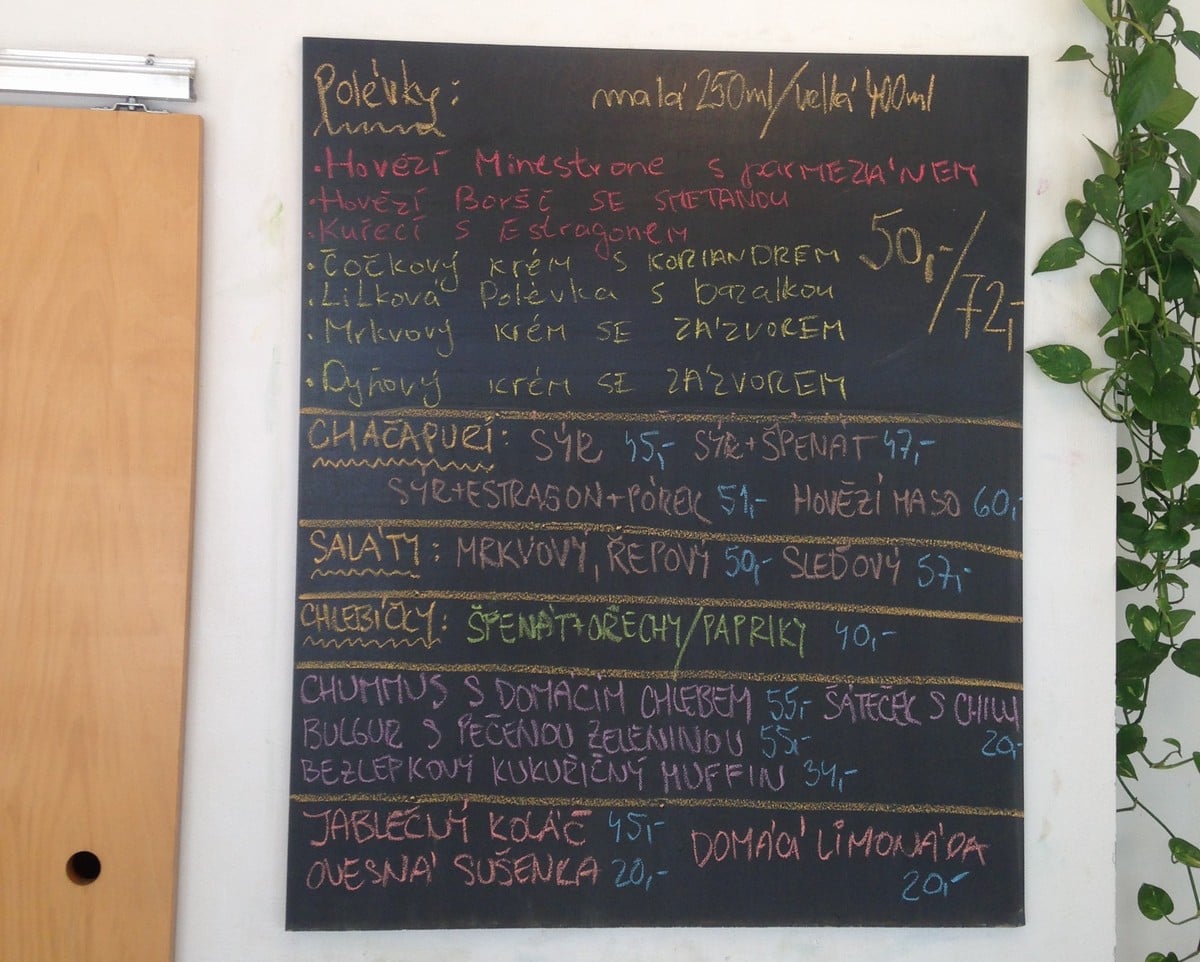 Polévky: malá 250ml/velká 400ml
• Hovězí Minestrone s parMEZÁNEM
• Hovězí Boršč SE SMETANOU
• Kuřecí s Estragonem
• Čočkový krém s KORIANDREM
50,-/72,-
• Lilková Polévka s bazalkou
• Mrkvový krém SE ZÁZVOREM
• Dyňový krém SE ZÁZVOREM
CHAČAPURI: SÝR 45,- SÝR+ŠPENÁT 47,-
SÝR+ESTRAGON+PÓREK 51,- HOVĚZÍ MASO 60,-
SALÁTY: MRKVOVÝ, ŘEPOVÝ 50,- SLEĎOVÝ 57,-
CHLEBÍČKY: ŠPENÁT+OŘECHY/PAPRIKY 40,-
CHUMMUS S DOMÁCÍM CHLEBEM 55,- ŠÁTEČEK S CHILLI
BULGUR S PEČENOU ZELENINOU 55,- 20,-
BEZLEPKOVÝ KUKUŘIČNÝ MUFFIN 34,-
JABLEČNÝ KOLÁČ 45,- DOMÁCÍ LIMONÁDA
OVESNÁ SUŠENKA 20,- 20,-